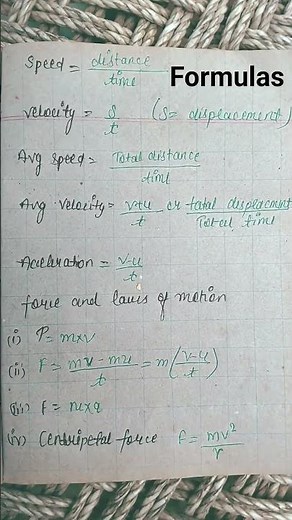 Formulas
Speed = distance / time
Velocity = s / t (s = displacement)
Avg speed = Total distance / time
Avg velocity = v+u / t or total displacment / Total time
Acceleration = v-u / t
force and laws of motion
(i) P = m×v
(ii) F = mv - mu / t = m (v-u / t)
(iii) F = m×a
(iv) Centripetal force F = mv² / r